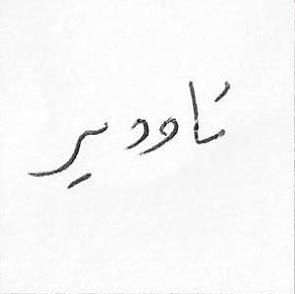 ناودیر